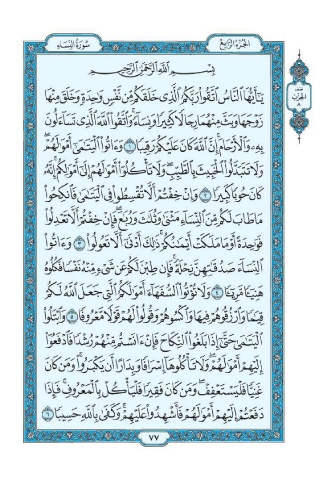 سُورَةُ النِّسَاءِ الجُزْءُ الرَّابِعُ
بِسْمِ اللَّهِ الرَّحْمَٰنِ الرَّحِيمِ
يَٰٓأَيُّهَا النَّاسُ اتَّقُوا رَبَّكُمُ الَّذِى خَلَقَكُم مِّن نَّفْسٍ وَٰحِدَةٍ وَخَلَقَ مِنْهَا
زَوْجَهَا وَبَثَّ مِنْهُمَا رِجَالًا كَثِيرًا وَنِسَآءً وَاتَّقُوا اللَّهَ الَّذِى تَسَآءَلُونَ
بِهِۦ وَالْأَرْحَامَ إِنَّ اللَّهَ كَانَ عَلَيْكُمْ رَقِيبًا ١ وَءَاتُوا الْيَتَٰمَىٰٓ أَمْوَٰلَهُمْ
وَلَا تَتَبَدَّلُوا الْخَبِيثَ بِالطَّيِّبِ وَلَا تَأْكُلُوٓا أَمْوَٰلَهُمْ إِلَىٰٓ أَمْوَٰلِكُمْ إِنَّهُۥ
كَانَ حُوبًا كَبِيرًا ٢ وَإِنْ خِفْتُمْ أَلَّا تُقْسِطُوا فِى الْيَتَٰمَىٰ فَانكِحُوا
مَا طَابَ لَكُم مِّنَ النِّسَآءِ مَثْنَىٰ وَثُلَٰثَ وَرُبَٰعَ فَإِنْ خِفْتُمْ أَلَّا تَعْدِلُوا
فَوَٰحِدَةً أَوْ مَا مَلَكَتْ أَيْمَٰنُكُمْ ذَٰلِكَ أَدْنَىٰٓ أَلَّا تَعُولُوا ٣ وَءَاتُوا
النِّسَآءَ صَدُقَٰتِهِنَّ نِحْلَةً فَإِن طِبْنَ لَكُمْ عَن شَىْءٍ مِّنْهُ نَفْسًا فَكُلُوهُ
هَنِيٓـًٔا مَّرِيٓـًٔا ٤ وَلَا تُؤْتُوا السُّفَهَآءَ أَمْوَٰلَكُمُ الَّتِى جَعَلَ اللَّهُ لَكُمْ
قِيَٰمًا وَارْزُقُوهُمْ فِيهَا وَاكْسُوهُمْ وَقُولُوا لَهُمْ قَوْلًا مَّعْرُوفًا ٥ وَابْتَلُوا
الْيَتَٰمَىٰ حَتَّىٰٓ إِذَا بَلَغُوا النِّكَاحَ فَإِنْ ءَانَسْتُم مِّنْهُمْ رُشْدًا فَادْفَعُوٓا
إِلَيْهِمْ أَمْوَٰلَهُمْ وَلَا تَأْكُلُوهَآ إِسْرَافًا وَبِدَارًا أَن يَكْبَرُوا وَمَن كَانَ
غَنِيًّا فَلْيَسْتَعْفِفْ وَمَن كَانَ فَقِيرًا فَلْيَأْكُلْ بِالْمَعْرُوفِ فَإِذَا
دَفَعْتُمْ إِلَيْهِمْ أَمْوَٰلَهُمْ فَأَشْهِدُوا عَلَيْهِمْ وَكَفَىٰ بِاللَّهِ حَسِيبًا ٦
٧٧